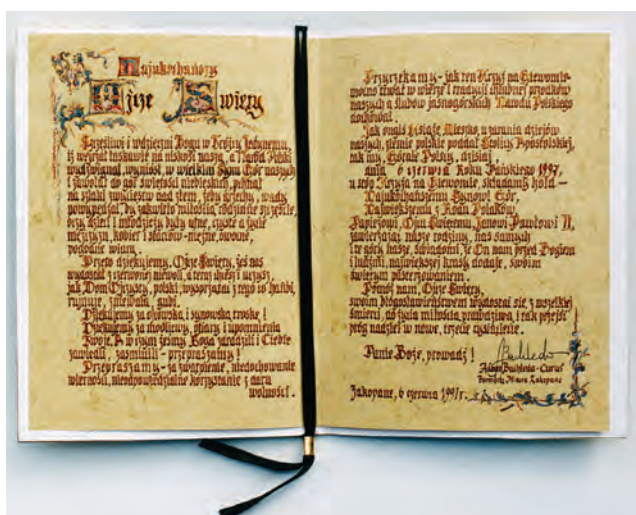 Najukochańszy
Ojcze Święty
Szczęśliwi i wdzięczni Bogu w Trójcy Jedynemu,
iż wejrzał łaskawie na niskość naszą, a Naród Polski
wydźwignął, wyniósł, w wielkim Synu Gór naszych
i zawołał do gór świętości niebieskich, pchnął
na szlaki zwycięstw nad złem, żeby grzechy, wady
powypalać, by zakwitło miłością rodzinne szczęście,
by dzieci i młodzieży były ufne, czyste a życie
mężczyzn, kobiet i starców - mężne, owocne,
pogodne wiarą.
Przeto dziękujemy, Ojcze Święty, żeś nas
wydostał z czerwonej niewoli, a teraz dusze i uczysz,
jak Dom Ojczysty, polski, wysprzątać z tego co hańbi,
rujnuje, zniewala, gubi.
Dziękujemy za ojcowską i synowską troskę!
Dziękujemy za modlitwy, ofiary i upomnienia
Twoje. A w czym żeśmy Boga zdradzili i Ciebie
zawiedli, zasmucili - przepraszamy!
Przepraszamy - za zwątpienie, niedochowanie
wierności, nieodpowiedzialne korzystanie z daru
wolności.
Przyrzekamy - jak ten Krzyż na Giewoncie -
mocno trwać w wierze i tradycji chlubnej przodków
naszych a ślubów jasnogórskich Narodu Polskiego
dochować.
Jak ongiś Książę Mieszko, u zarania dziejów
naszych, ziemie polskie poddał Stolicy Apostolskiej,
tak my, Górale Polscy, dzisiaj,
dnia 6 czerwca Roku Pańskiego 1997,
u stóp Krzyża na Giewoncie, składamy hołd -
Najukochańszemu Synowi Gór,
Największemu z Rodu Polaków,
Papieżowi, Ojcu Świętemu, Janowi Pawłowi II,
zawierzając nasze rodziny, nas samych
i te góry nasze, świadomi, że On nam przed Bogiem
i ludźmi, największej krasy dodaje, swoim
świętym pasterzowaniem.
Pomóż nam, Ojcze Święty,
swoim błogosławieństwem wydostać się z wszelkiej
śmierci, do życia miłością prawdziwą, i tak przejść
próg nadziei w nowe, trzecie tysiąclecie.
Panie Boże, prowadź!
Adam Bachleda-Curuś
Burmistrz Miasta Zakopane
Zakopane, 6 czerwca 1997 r.